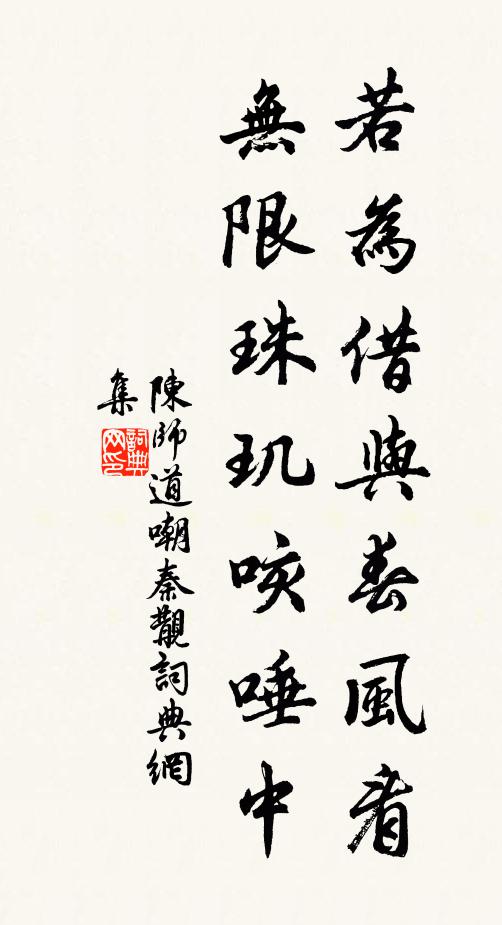 若為借與春風看
無限珠玑咳唾中
陳師道嘲秦觀詞典網
集
詞典
网印